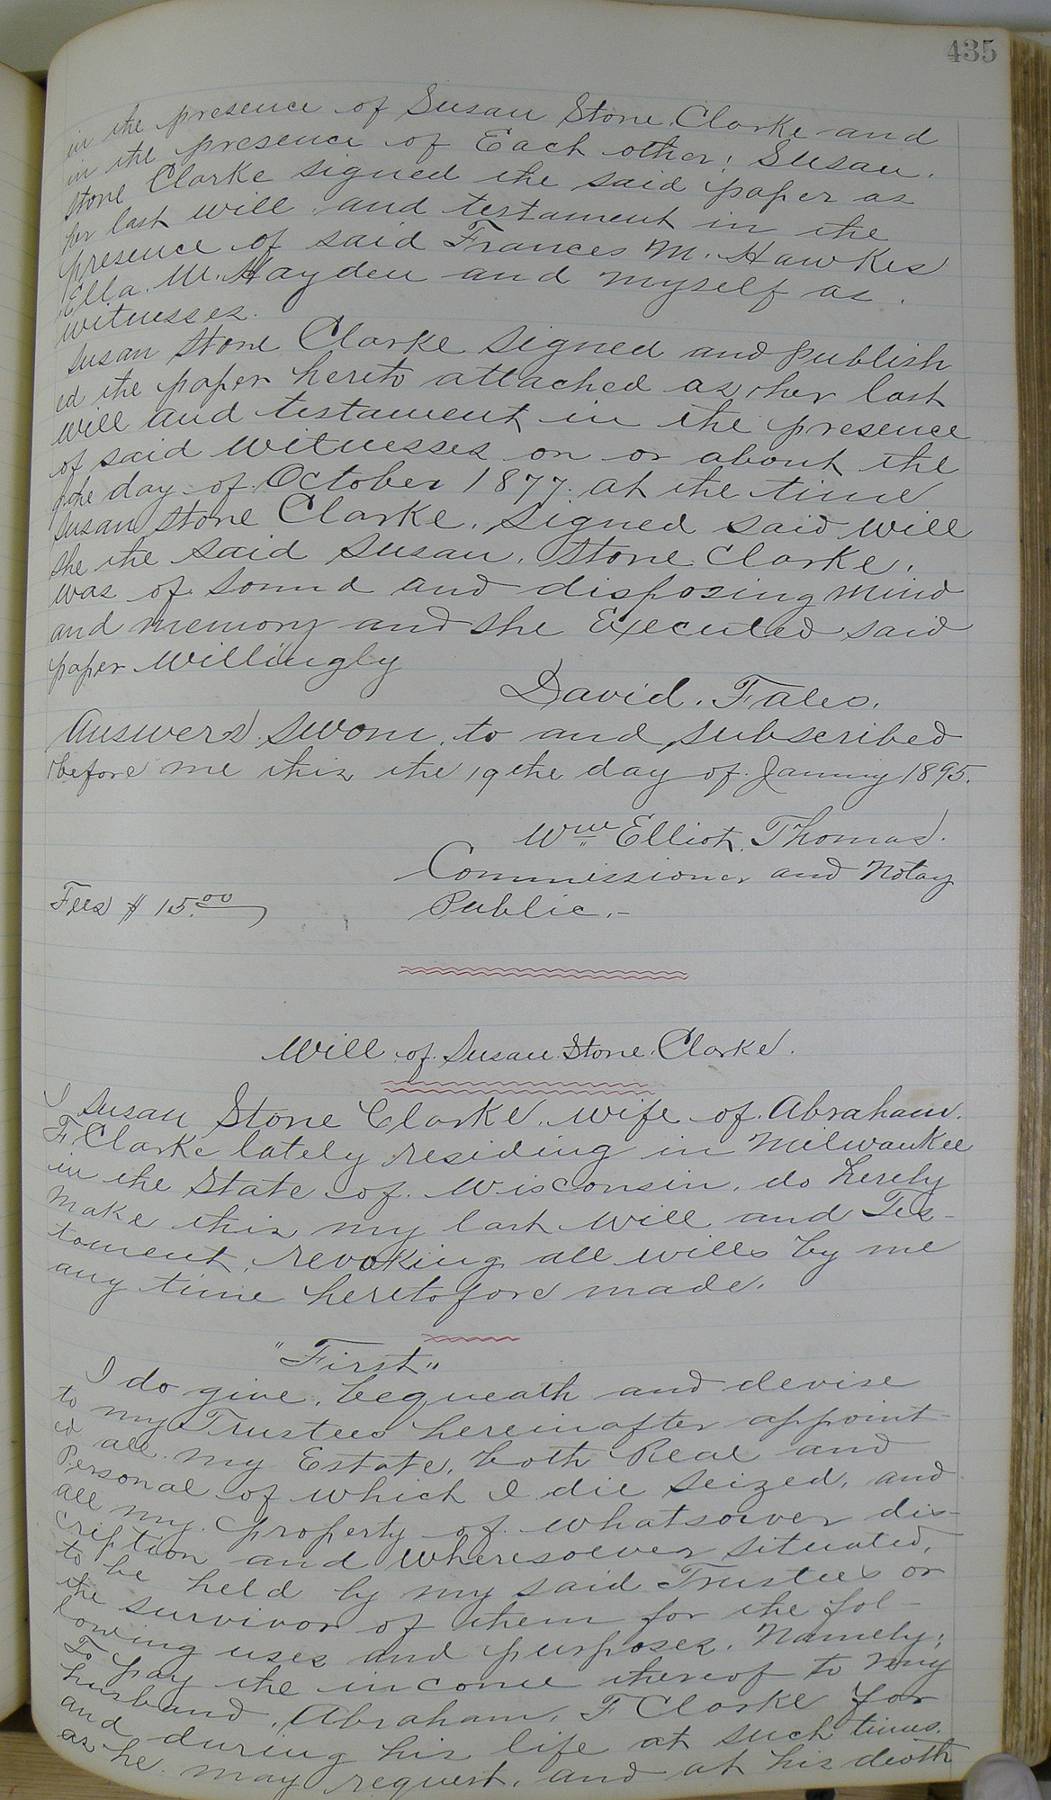 435
in the presence of Susan Stone Clarke and
in the presence of Each other; Susan.
Stone Clarke signed the said paper as
her last will and testament in the
presence of said Frances M. Hawkes
Ella. M. Hayden and myself as.
witnesses.
Susan Stone Clarke signed and publish
ed the paper hereto attached as her last
will and testament in the presence
of said witnesses on or about the
day of October 1877. at the time
Susan Stone Clarke. Signed said will
she the said Susan. Stone Clarke.
was of sound and disposing mind
and memory and she Executed said
paper willingly
David. Fales.
Answers sworn. to and subscribed
before me this the 19the day of January 1895.
Wm Elliot. Thomas.
Commissioner and Notay
Public.-
Fees $ 15.00
Will of Susan Stone Clarke.
I Susan Stone Clarke. wife of Abraham.
F Clarke lately residing in Milwaukee
in the State of Wisconsin. do hereby
make this my last will and Tes-
tament. revoking all wills by me
any time heretofore made.
"First"
I do give, bequeath and devise
to my Trustees hereinafter appoint-
ed all my Estate, both Real and
Personal of which I die seized, and
all my property of whatsoever dis-
cription and wheresoever situated,
to be held by my said Trustees or
the survivor of them for the fol-
lowing uses and purposes. Namely;
To pay the income thereof to my
husband, Abraham, F Clarke for
and during his life at such times.
as he may request. and at his death